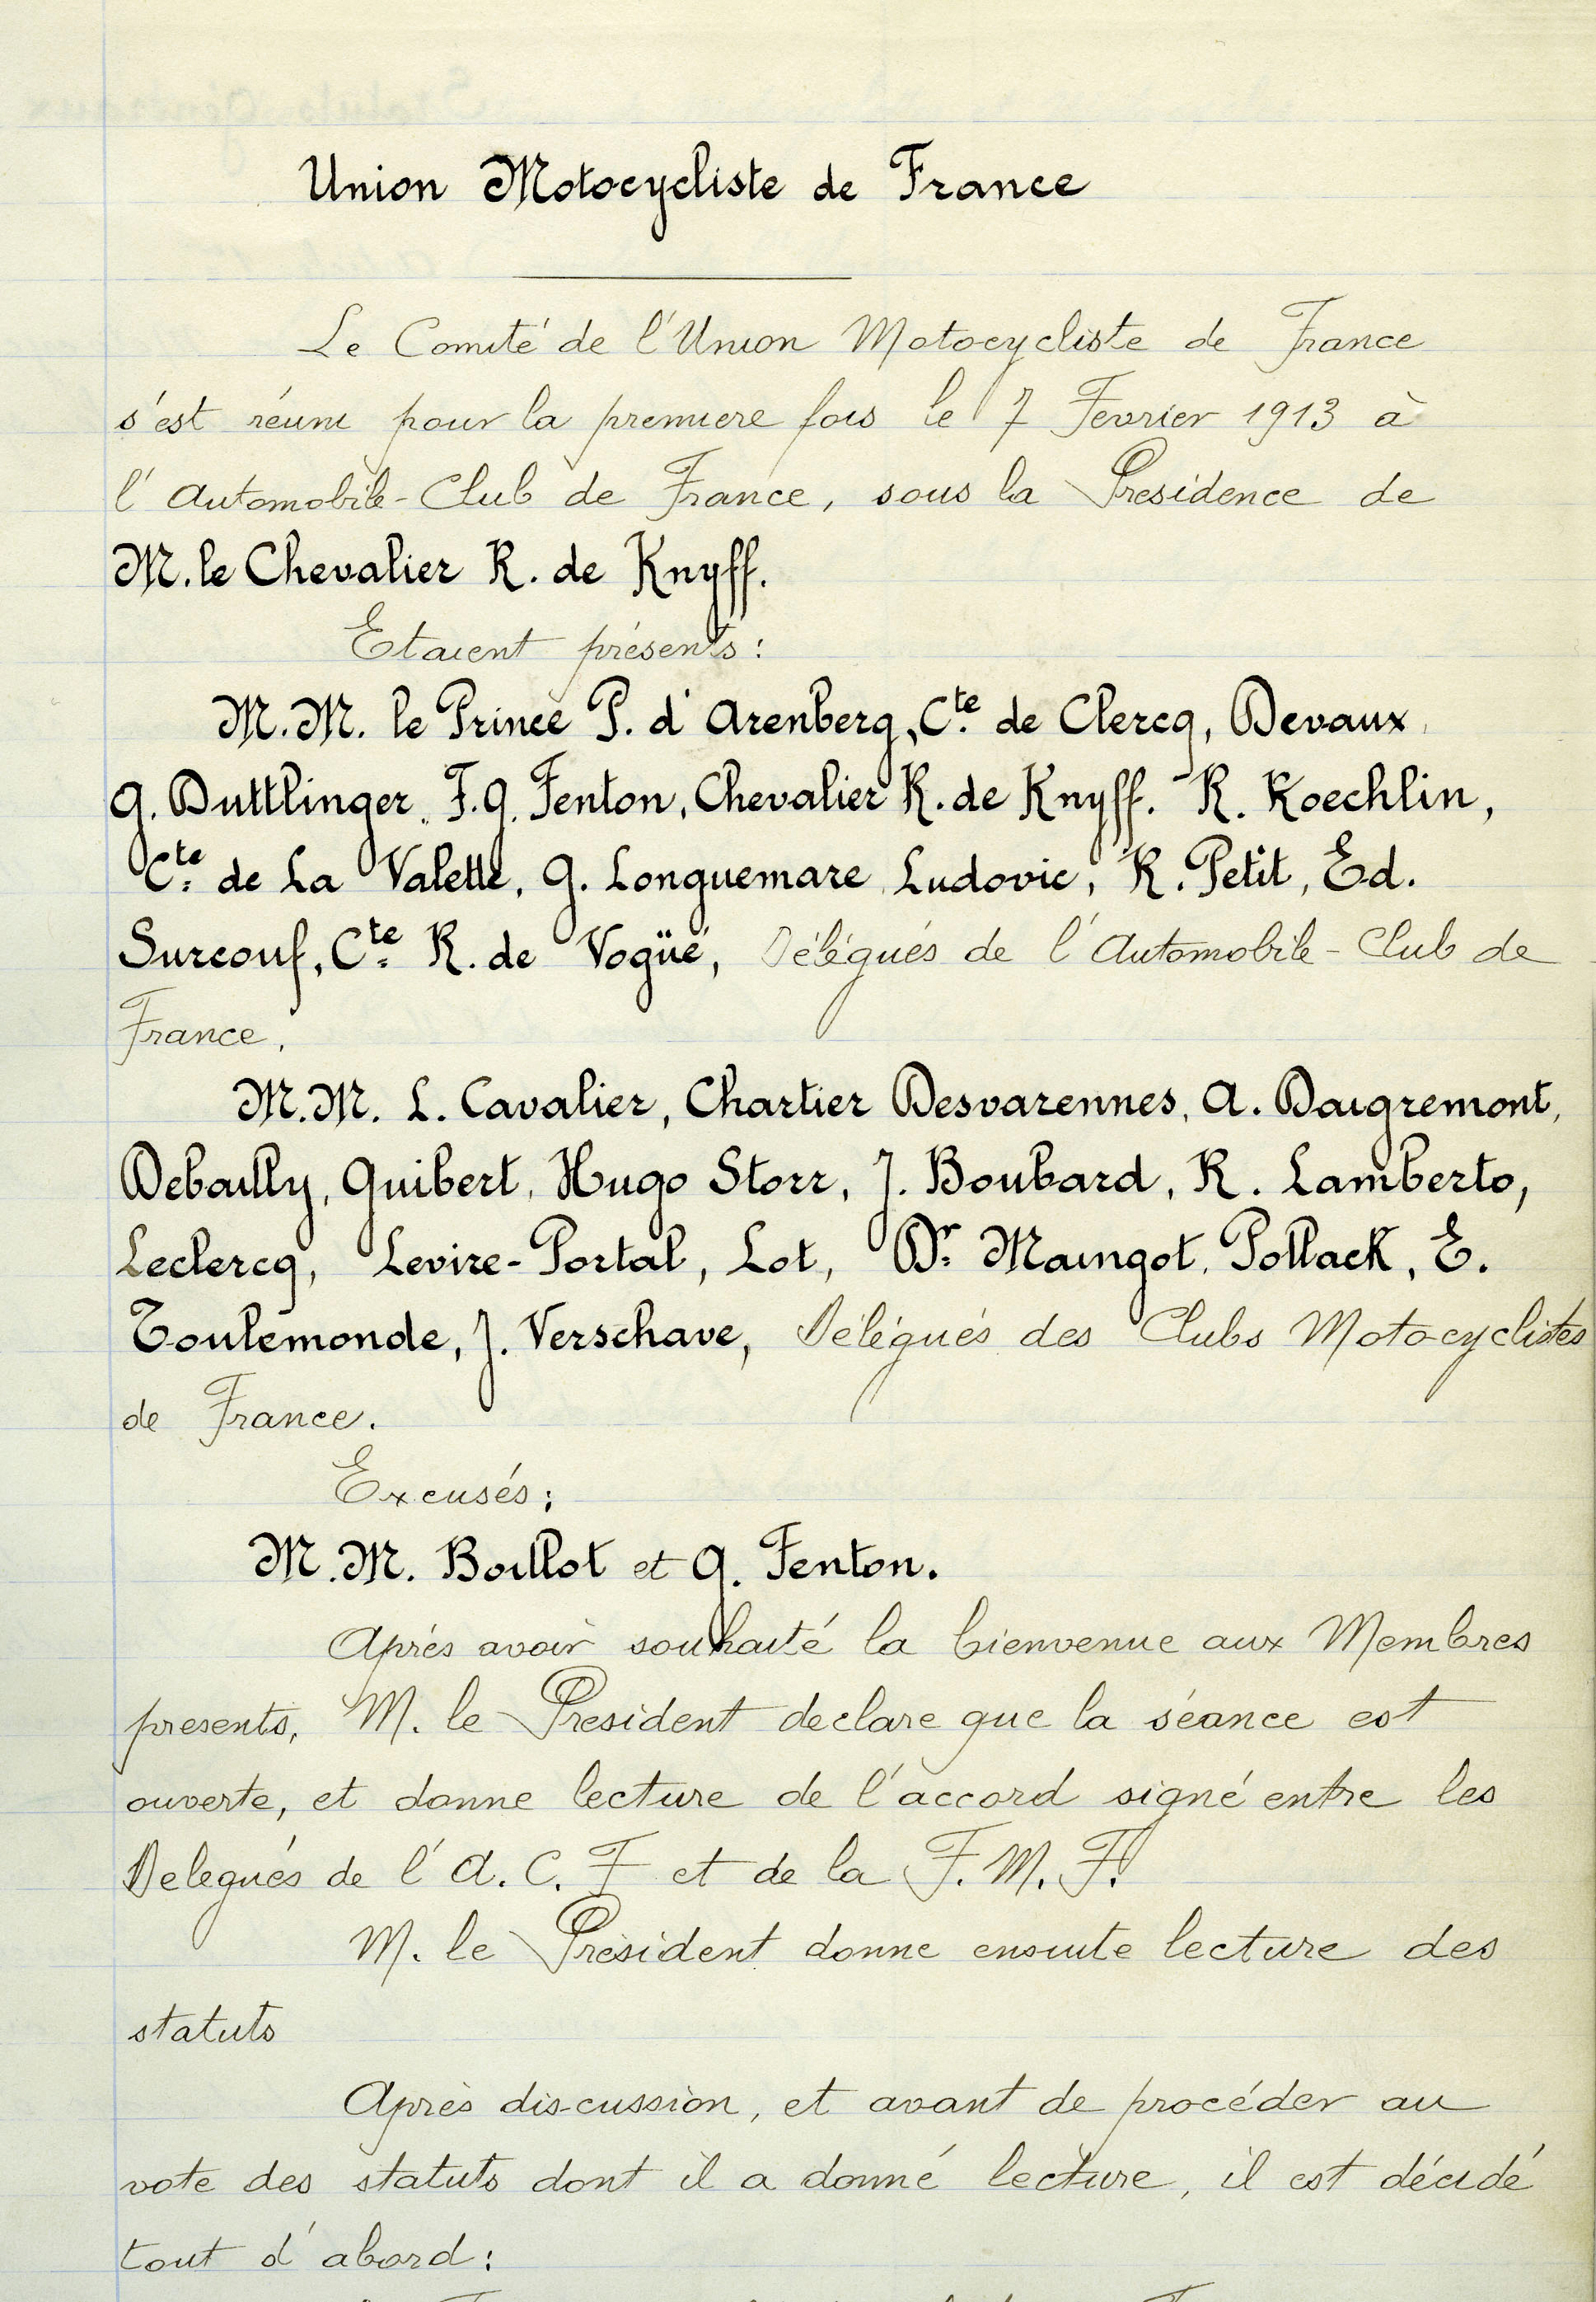 Union Motocycliste de France
Le Comité de l'Union Motocycliste de France
s'est réuni pour la premiere fois le 7 Fevrier 1913 à
l'Automobile-Club de France, sous la Presidence de
M. le Chevalier R. de Knyff.
Etaient présents :
M.M. le Prince P. d'Arenberg, Cte. de Clercq, Devaux,
G. Duttlinger, F.G. Fenton, Chevalier R. de Knyff. R. Koechlin,
Cte. de La Valette, G. Longuemare Ludovic, R. Petit, Ed.
Surcouf, Cte. R. de Vogüé, Délégués de l'Automobile-Club de
France.
M.M. L. Cavalier, Chartier Desvarennes, A. Daigremont,
Debailly, Guibert, Hugo Storr, J. Boubard, R. Lamberto,
Leclercq, Levire-Portal, Lot, Dr. Maingot, Pollack, E.
Toulemonde, J. Verschave, Délégués des Clubs Motocyclistes
de France.
Excusés :
M.M. Boillot et G. Fenton.
Après avoir souhaité la bienvenue aux Membres
presents, M. le President declare que la séance est
ouverte, et donne lecture de l'accord signé entre les
Delegués de l'A.C.F et de la F.M.F.
M. le Président donne ensuite lecture des
statuts
Après discussion, et avant de procéder au
vote des statuts dont il a donné lecture, il est décidé
tout d'abord :